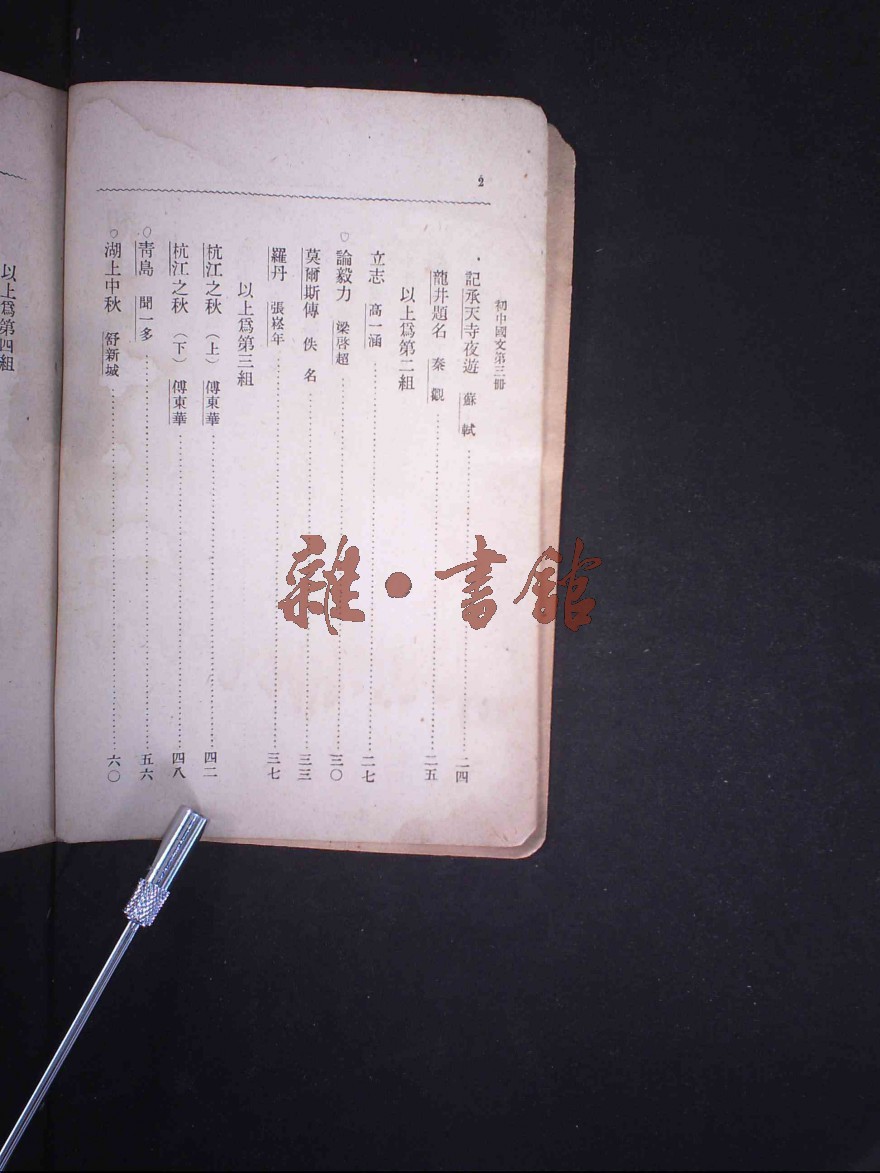 2
初中國文第三冊
．記承天寺夜遊　蘇　軾……二四
龍井題名　秦　觀……二五
以上爲第二組
立志　高一涵……二七
○論毅力　梁啓超……三〇
莫爾斯傳　佚　名……三三
羅丹　張崧年……三七
以上爲第三組
杭江之秋（上）　傅東華……四二
杭江之秋（下）　傅東華……四八
○靑島　聞一多……五六
○湖上中秋　舒新城……六〇
以上爲第四組
雜・書館